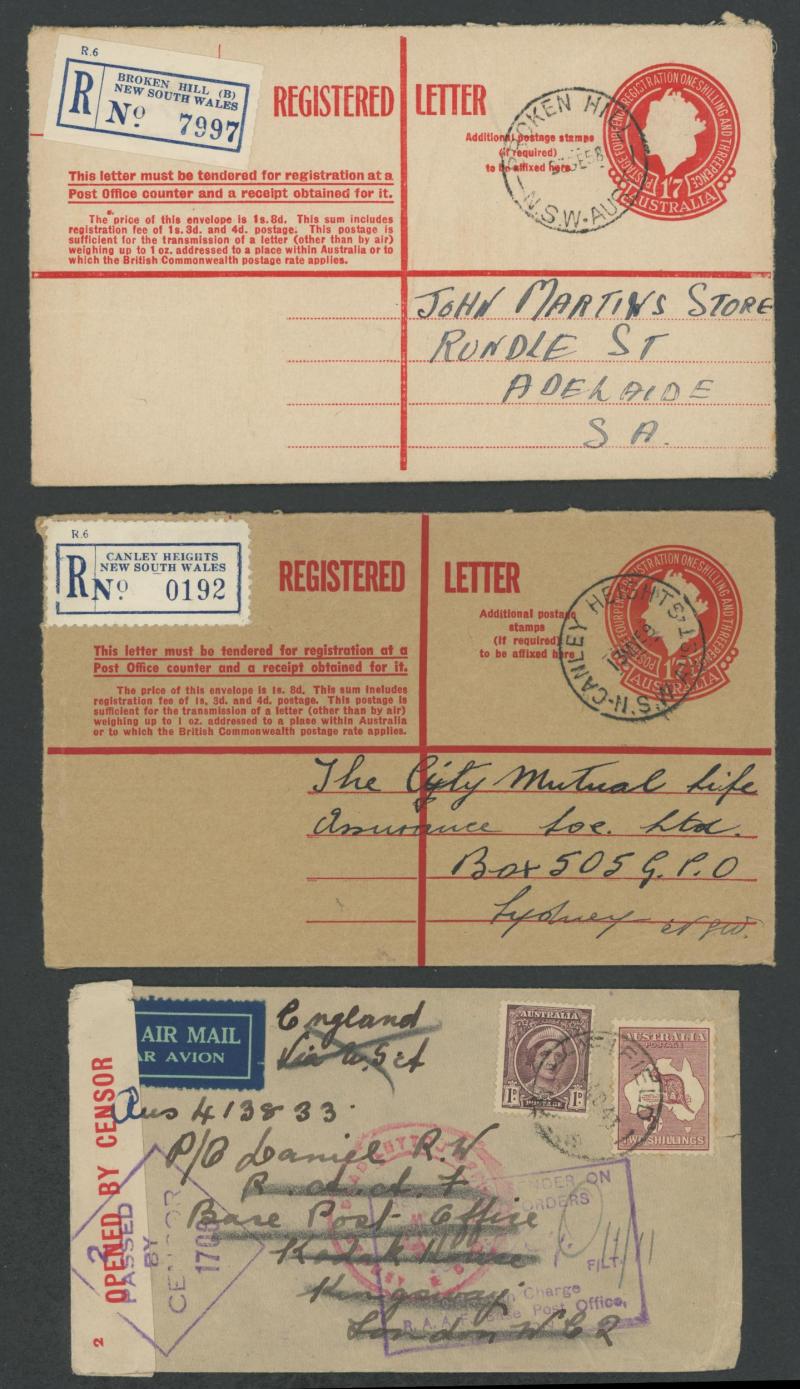 R.6
R
BROKEN HILL (B)
NEW SOUTH WALES
No 7997
REGISTERED LETTER
Additional postage stamps
(if required)
to be affixed here
BROKEN HILL
N.S.W-AUST
POSTAGE FOURPENCE REGISTRATION ONE SHILLING AND THREEPENCE
1'7
AUSTRALIA
This letter must be tendered for registration at a
Post Office counter and a receipt obtained for it.
The price of this envelope is 1s. 8d. This sum includes
registration fee of 1s. 3d. and 4d. postage. This postage is
sufficient for the transmission of a letter (other than by air)
weighing up to 1 oz. addressed to a place within Australia or to
which the British Commonwealth postage rate applies.
JOHN MARTINS STORE
RUNDLE ST
ADELAIDE
S A.
R.6
R
CANLEY HEIGHTS
NEW SOUTH WALES
No 0192
REGISTERED LETTER
Additional postage
stamps
(if required)
to be affixed here
CANLEY HEIGHTS
N.S.W-AUST
POSTAGE FOURPENCE REGISTRATION ONE SHILLING AND THREEPENCE
1'7
AUSTRALIA
This letter must be tendered for registration at a
Post Office counter and a receipt obtained for it.
The price of this envelope is 1s. 8d. This sum includes
registration fee of 1s, 3d. and 4d. postage. This postage is
sufficient for the transmission of a letter (other than by air)
weighing up to 1 oz. addressed to a place within Australia
or to which the British Commonwealth postage rate applies.
The City Mutual Life
Assurance Soc. Ltd.
Box 505 G.P.O
Sydney N.S.W.
AIR MAIL
AR AVION
England
Via U.S.A
AUSTRALIA
1D 1D
POSTAGE
AUSTRALIA
POSTAGE
TWO SHILLINGS
Aus 413833.
P/O Daniel R.W
R.A.A.F
Base Post Office
Kodak House
Kingsway
London W C 2
2 OPENED BY CENSOR
2
PASSED
BY
CENSOR
1708
ENDER ON
ORDERS
F/LT.
Charge
R.A.A.F. Base Post Office,